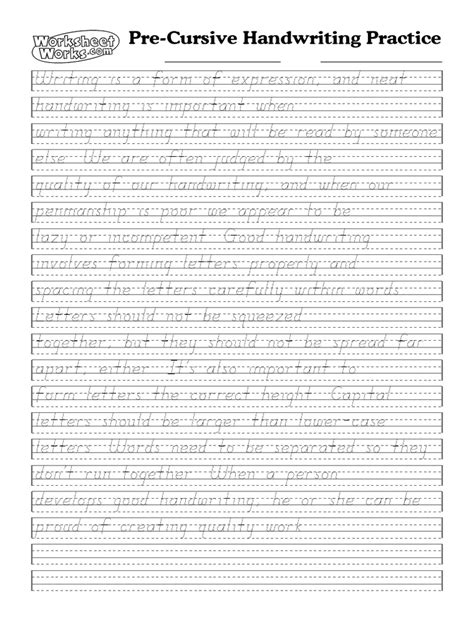 Worksheet
Works.com
Pre-Cursive Handwriting Practice
Writing is a form of expression, and neat
handwriting is important when
writing anything that will be read by someone
else. We are often judged by the
quality of our handwriting, and when our
penmanship is poor we appear to be
lazy or incompetent. Good handwriting
involves forming letters properly and
spacing the letters carefully within words.
Letters should not be squeezed
together, but they should not be spread far
apart, either. It's also important to
form letters the correct height. Capital
letters should be larger than lower-case
letters. Words need to be separated so they
don't run together. When a person
develops good handwriting, he or she can be
proud of creating quality work.